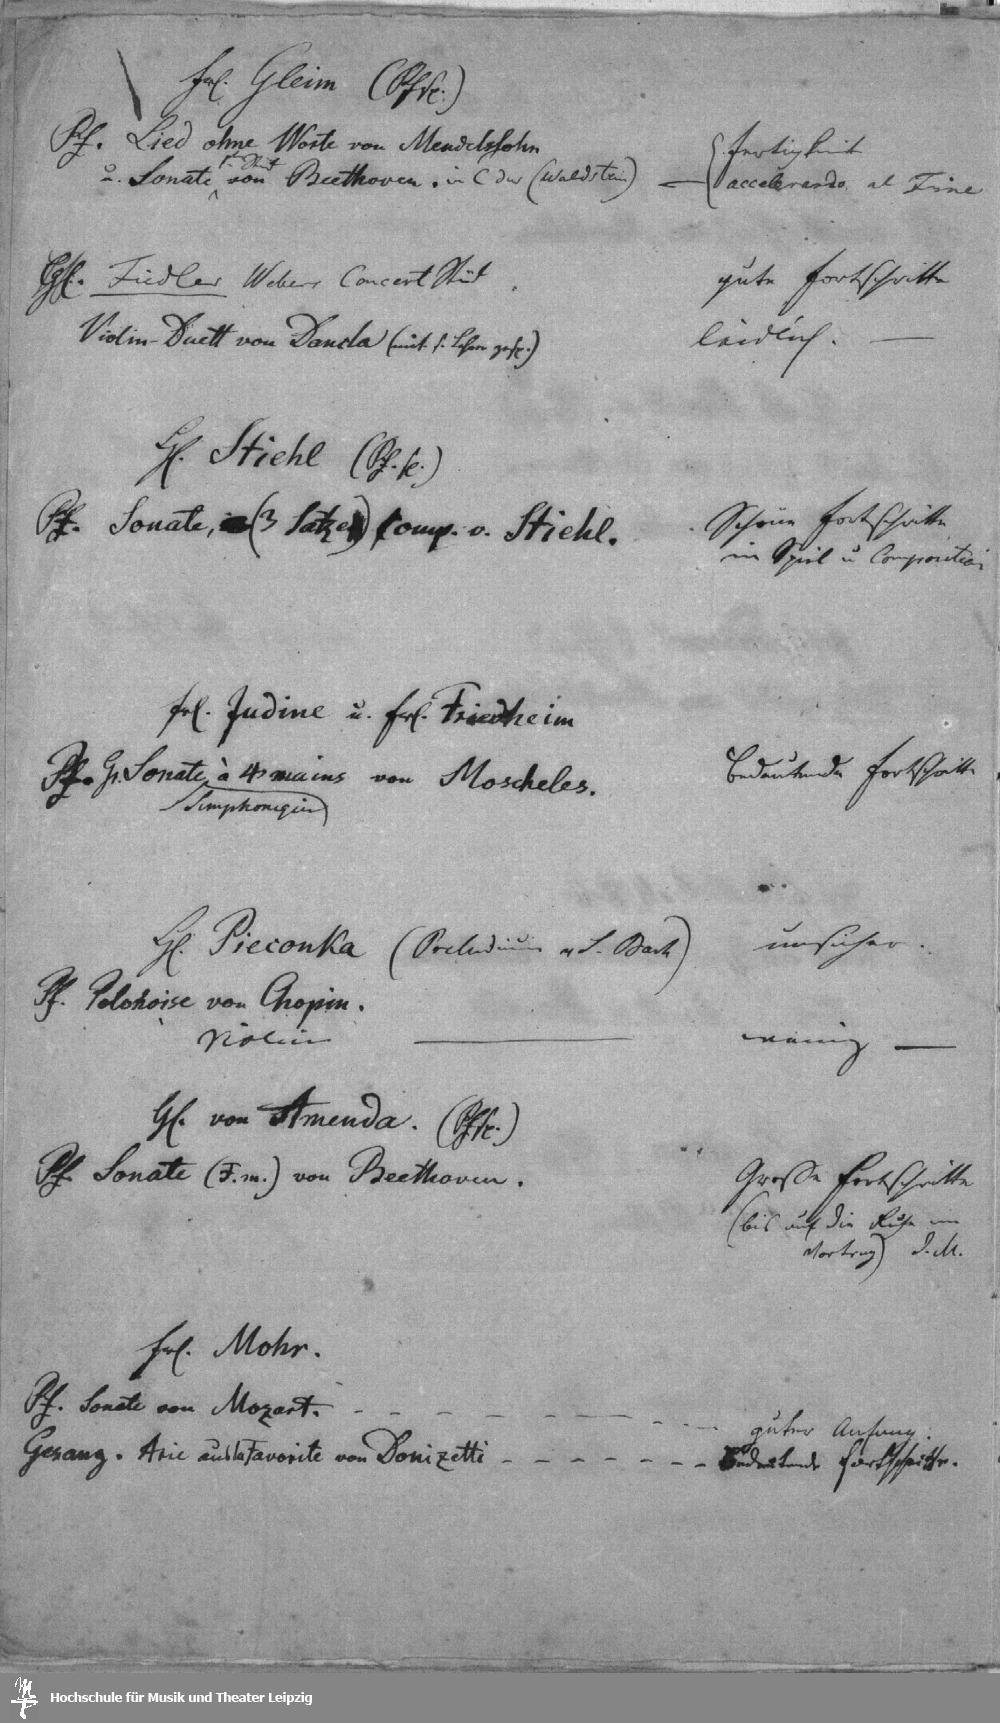 Frl. Gleim (Pfte.)
Pf. Lied ohne Worte von Mendelssohn
u. Sonate von Beethoven. in C dur (Waldstein) — Fertigkeit
accelerando al Fine
Fiedler Webers Concert Stück gute Fortschritte
Violin-Duett von Dancla (mit s. Lehrer gesp.) leidlich. —
H. Stiehl (Pf.te.)
Pf. Sonate, (3 Sätze) comp. v. Stiehl. Schöne Fortschritte
im Spiel u Composition
Frl. Judine u. Frl. Friedheim
Pf. Gr. Sonate à 4 mains von Moscheles. Bedeutende Fortschritte
H. Pieconka (Preludium v S. Bach) unsicher.
Pf. Polonoise von Chopin.
Violin — wenig —
H. von Amenda. (Pfte.)
Pf. Sonate (F. m.) von Beethoven. Grosse Fortschritte
(bis auf die Ruhe im
Vortrag) I. M.
Frl. Mohr.
Pf. Sonate von Mozart. guter Anfang.
Gesang. Arie aus la Favorite von Donizetti Bedeutende Fortschritte.
Hochschule für Musik und Theater Leipzig